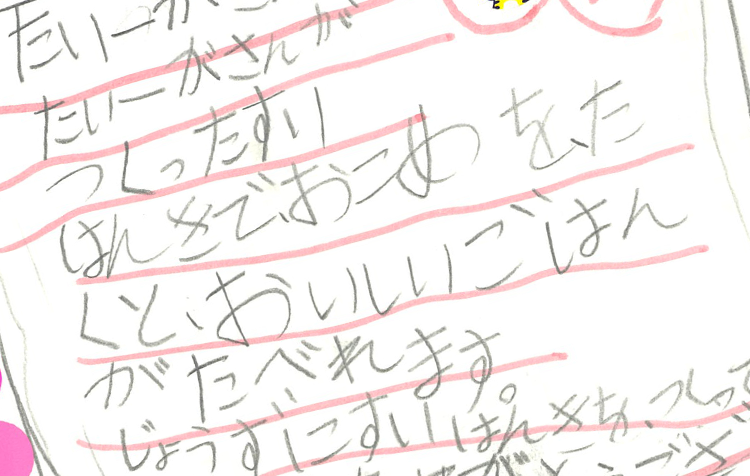 たいーが
たいーがさんが
つくったすい
はんきで、おこめをた
くと、おいしいごはん
がたべれます。
じょうずにすいぱんきを、つくって